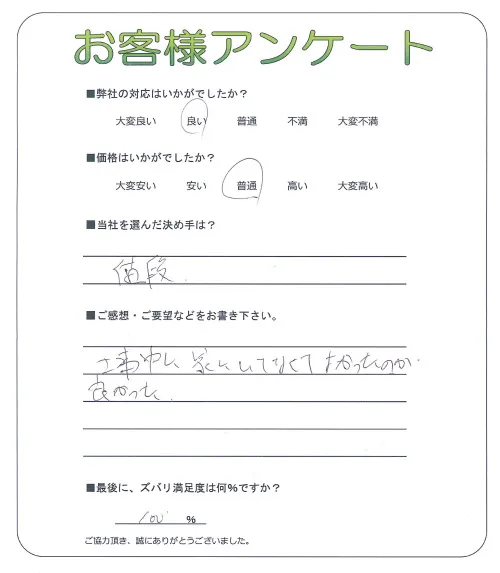 お客様アンケート
■弊社の対応はいかがでしたか？
大変良い 良い 普通 不満 大変不満
■価格はいかがでしたか？
大変安い 安い 普通 高い 大変高い
■当社を選んだ決め手は？
値段.
■ご感想・ご要望などをお書き下さい。
工事中に 家に いてなくて よかったのが.
良かった.
■最後に、ズバリ満足度は何%ですか？
100 %
ご協力頂き、誠にありがとうございました。